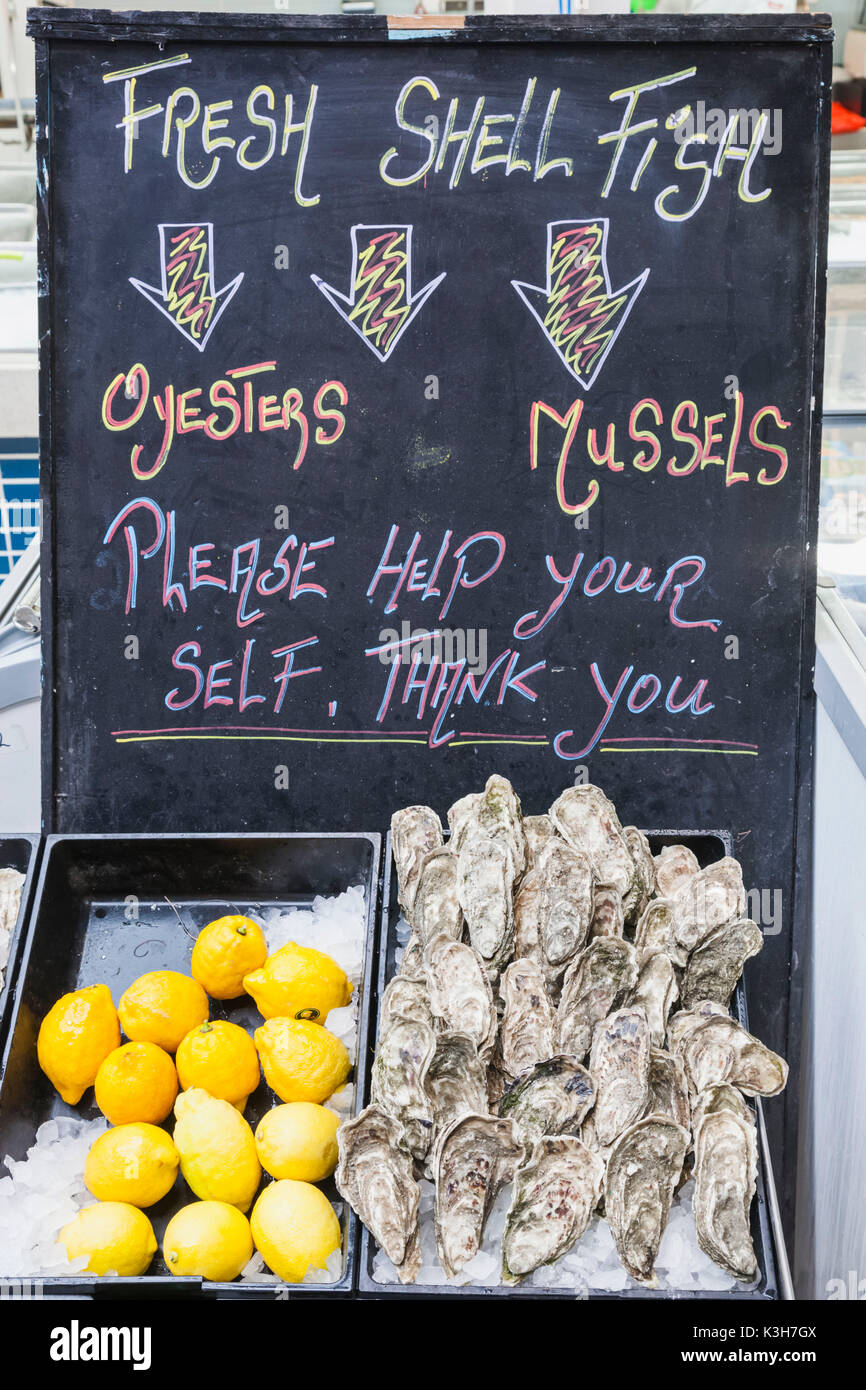 Fresh Shell Fish
Oyesters Mussels
Please Help your
Self. Thank you
alamy
Image ID: K3H7GX
www.alamy.com